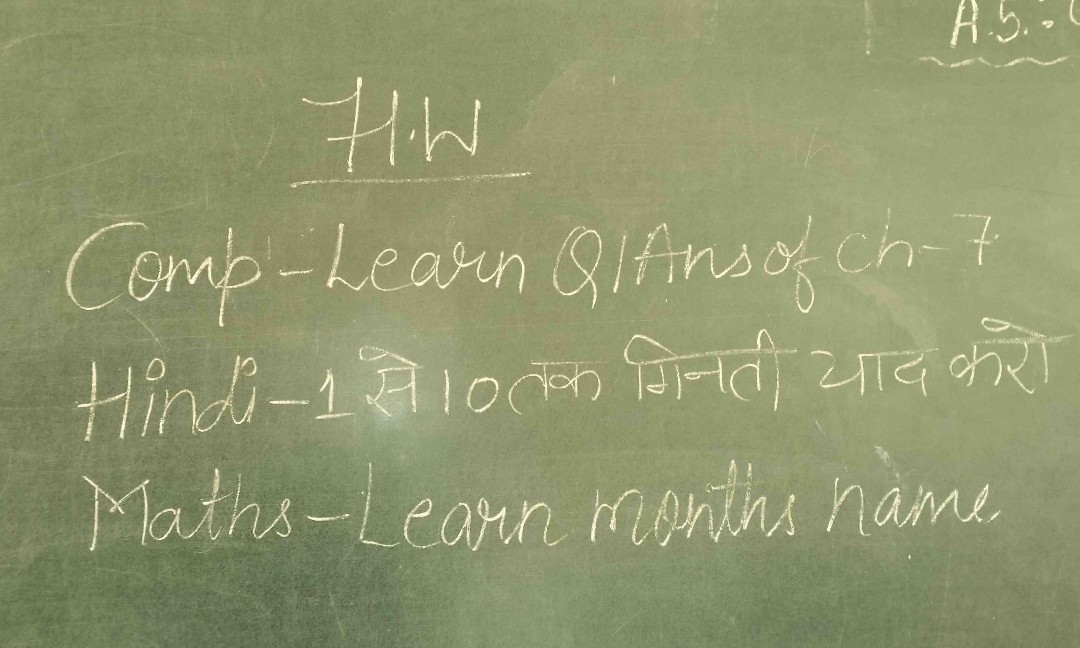 A.S.:
H.W
Comp - Learn Q/Ans of Ch-7
Hindi - 1 से 10 तक गिनती याद करो
Maths - Learn months name